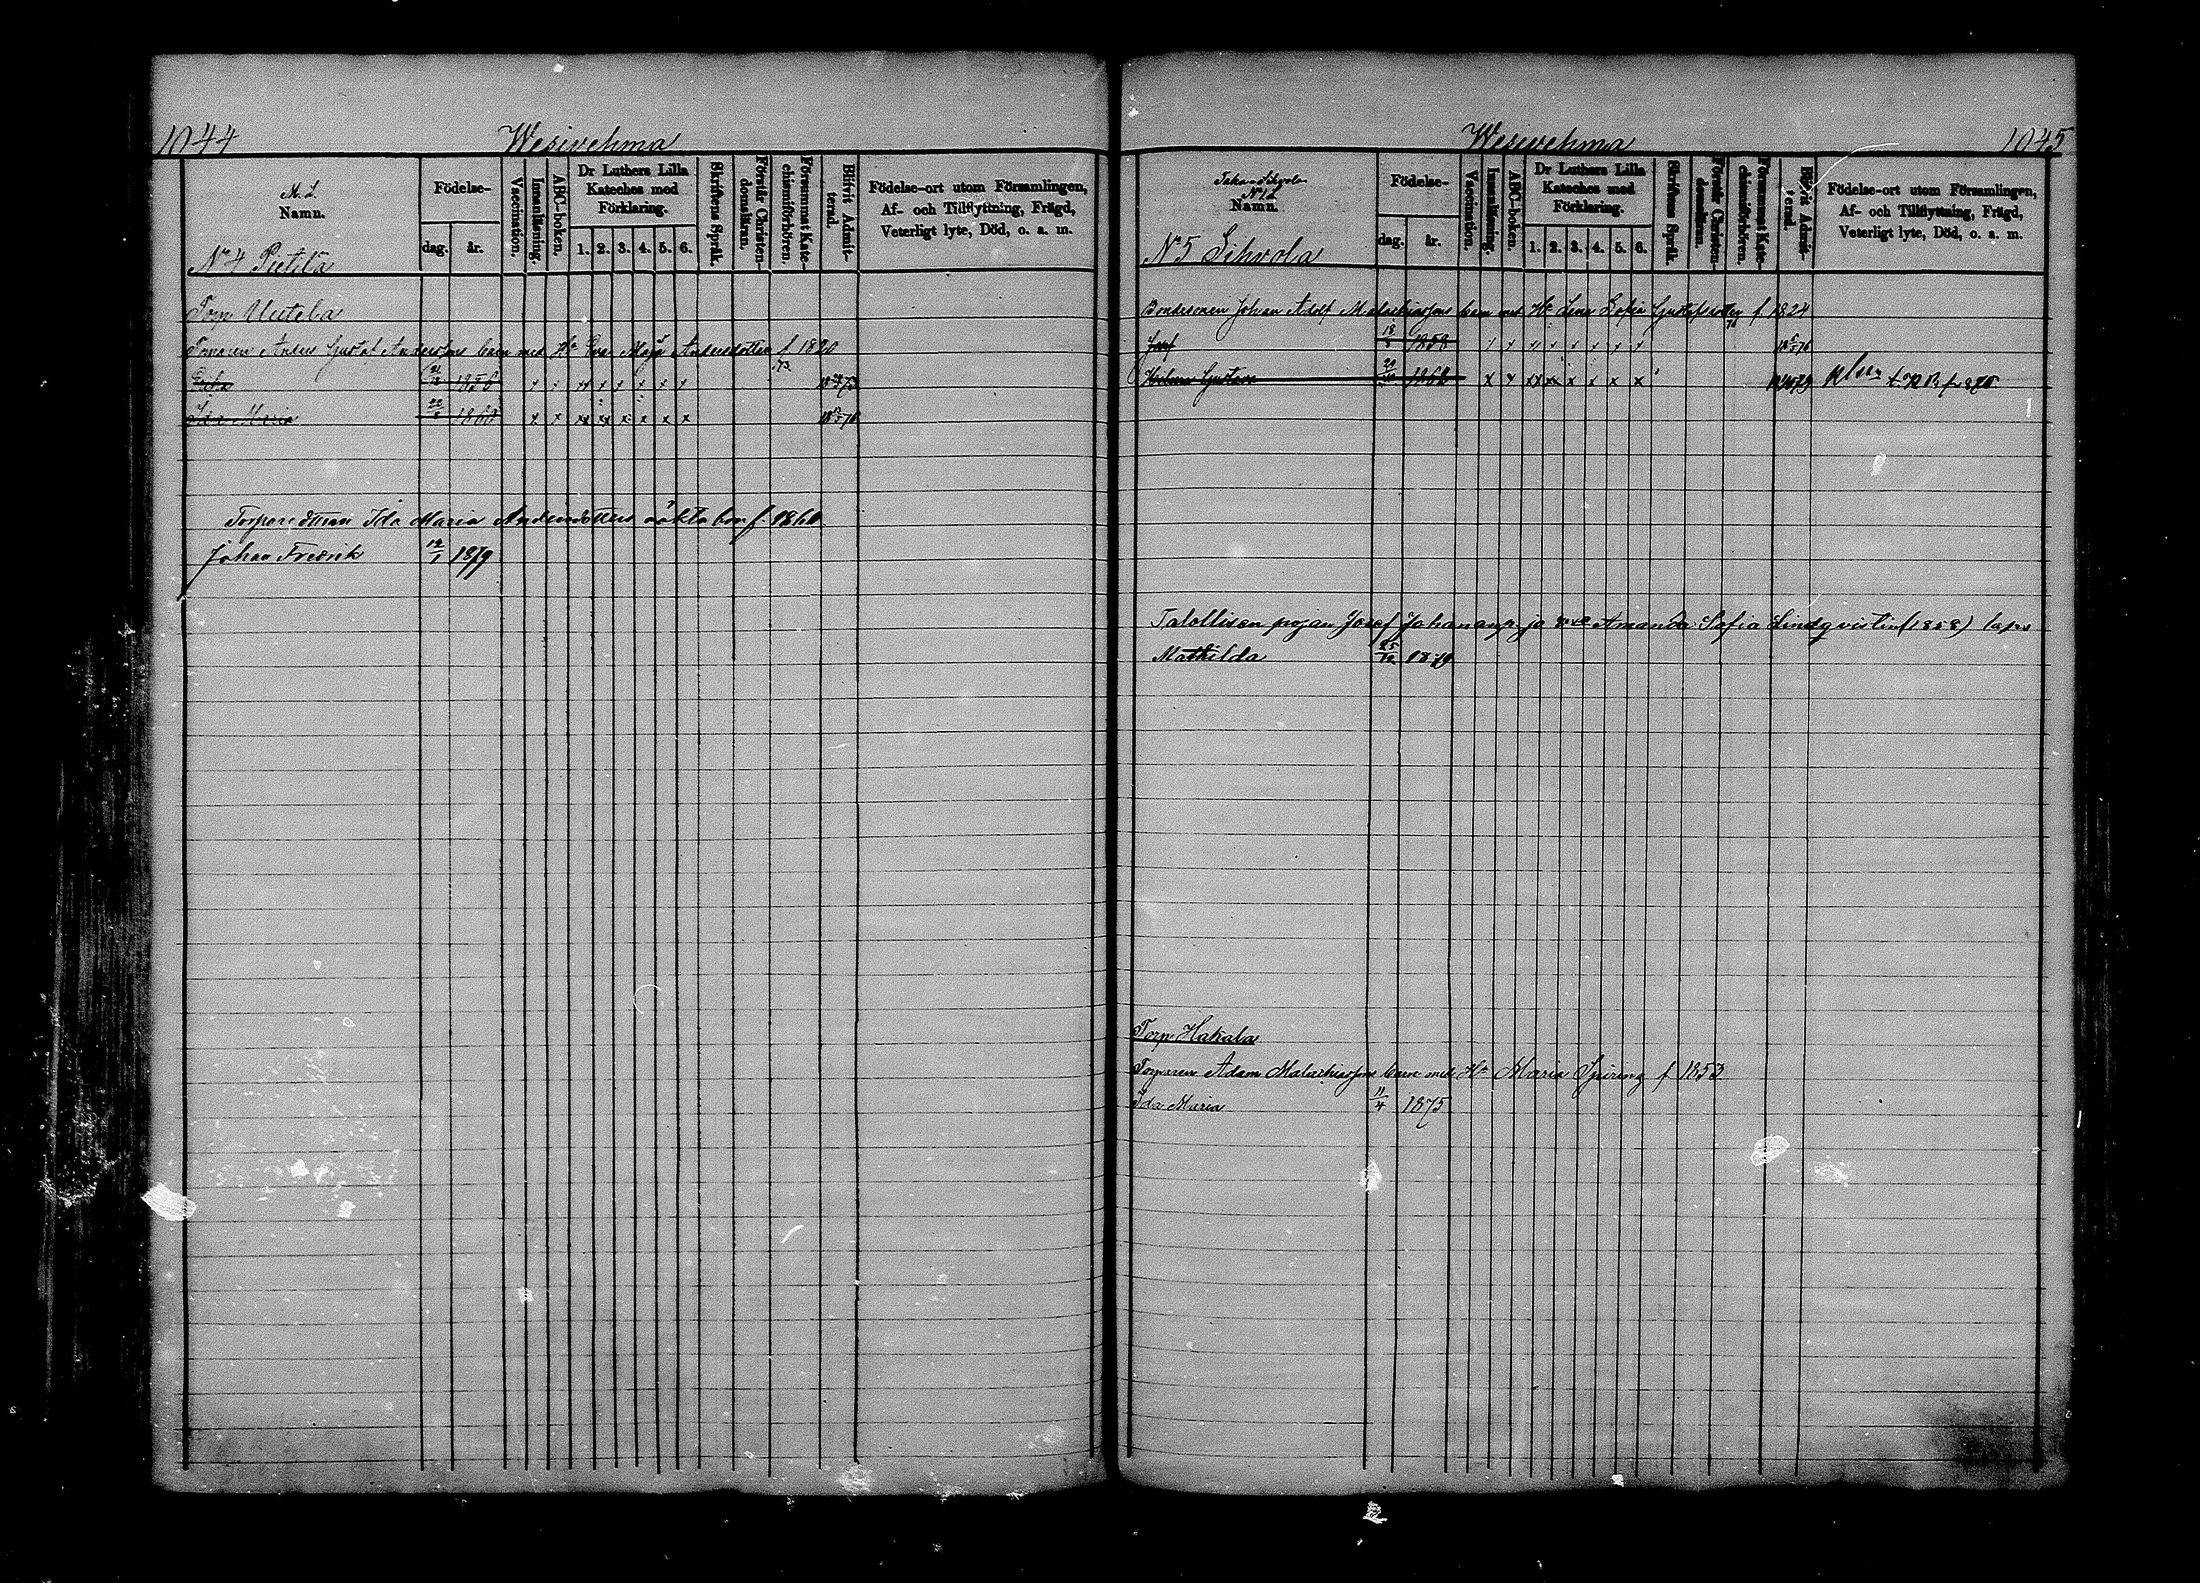 1044
Wesivehma
M. L.
Namn.
Födelse-
dag.
år.
Vaccination.
Innanläsning.
ABC-boken.
Dr Luthers Lilla
Kateches med
Förklaring.
1. 2. 3. 4. 5. 6.
Skriftens Språk.
Förstår Christen-
domsläran.
Försummat Kate-
chismiförhören.
Blifvit Admit-
terad.
Födelse-ort utom Församlingen,
Af- och Tillflyttning, Frägd,
Veterligt lyte, Död, o. a. m.
No 4 Pietilä
Torp Uutela
Torparen Anders Gustaf Anderssons barn med Hu Eva Maja Andersdotter f 1820
1856
Ida Maria 22 1860
Ida Maria Andersdotters oäkta barn f. 1860
Johan Fredrik 12/1 1879
Wesivehma
1045
Namn.
Födelse-
dag.
år.
Vaccination.
Innanläsning.
ABC-boken.
Dr Luthers Lilla
Kateches med
Förklaring.
1. 2. 3. 4. 5. 6.
Skriftens Språk.
Förstår Christen-
domsläran.
Försummat Kate-
chismiförhören.
Blifvit Admit-
terad.
Födelse-ort utom Församlingen,
Af- och Tillflyttning, Frägd,
Veterligt lyte, Död, o. a. m.
No 5 Sihvola
Bondesonen Johan Adolf Malachiassons barn med Hu Lena Sofia Gustafsdotter f. 1824
Josef 1858
Gustava 1862
Talollisen pojan Josef Johananp. ja Amanda Sofia Lindqvistin (1858) laps
Mathilda 25/12 1879
Torp Hakala
Torparen Adam Malachiassons barn med Hu Maria Spiring f 1853
Ida Maria 11/4 1875